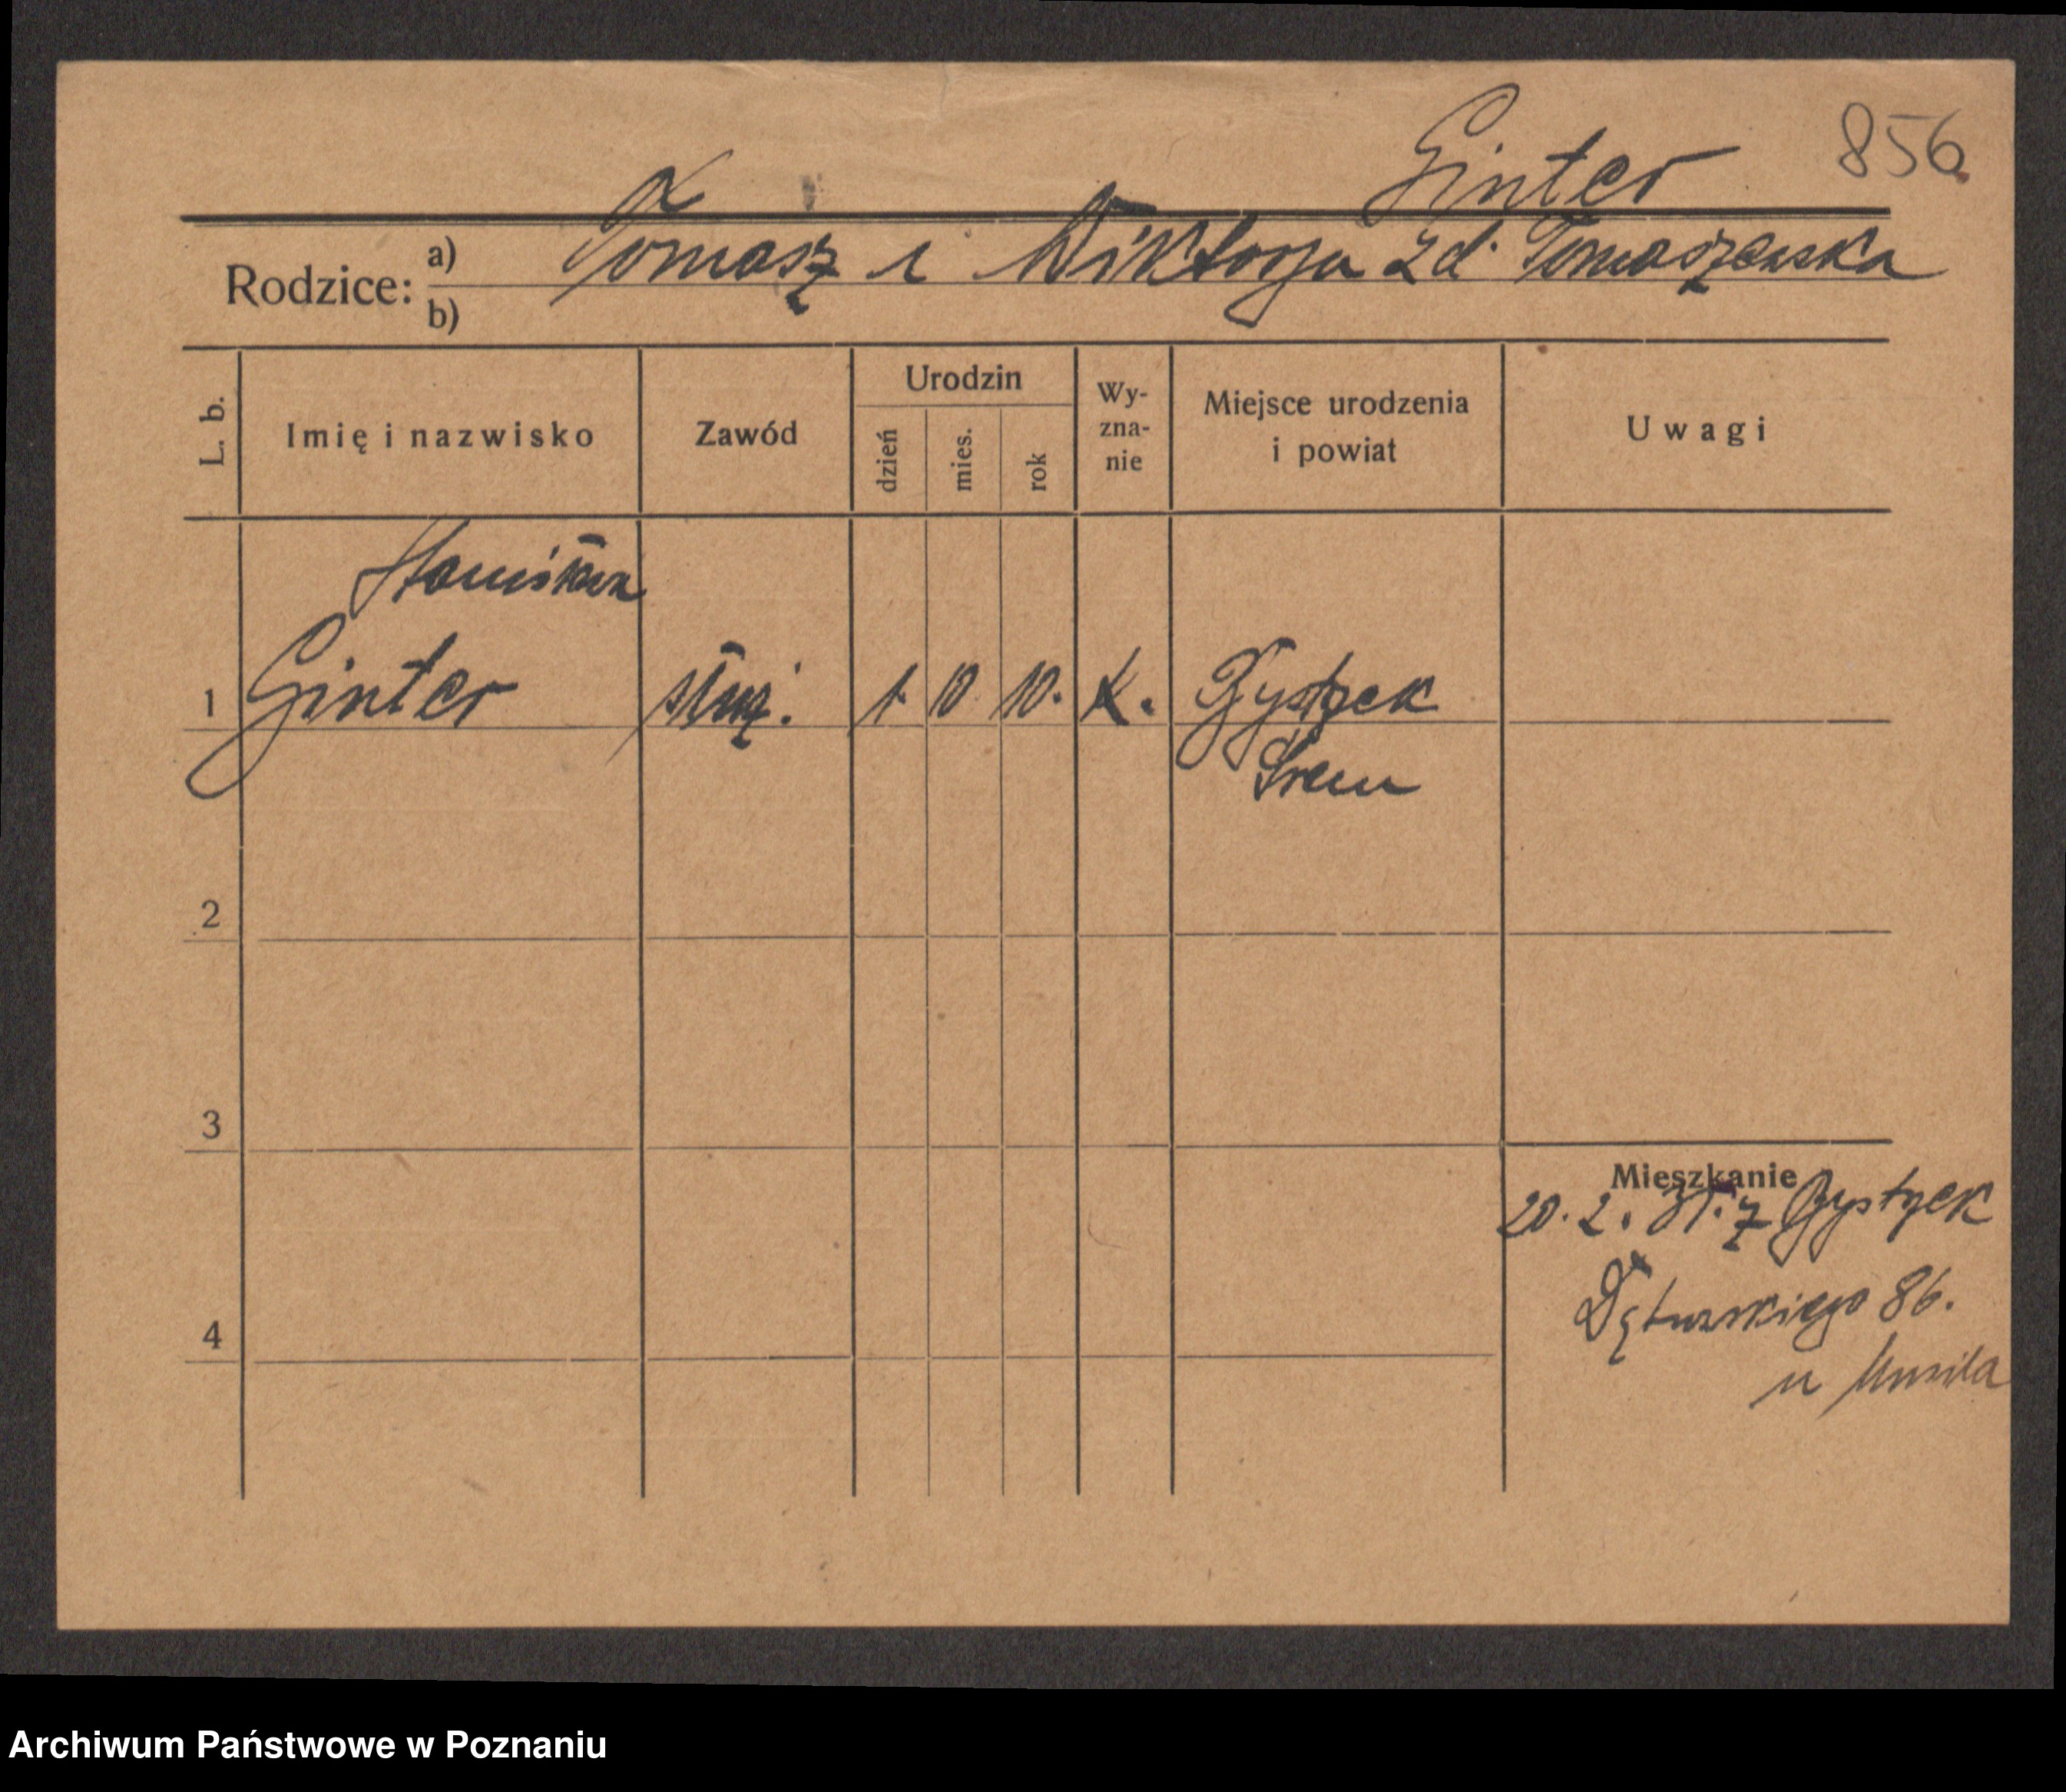 Ginter 856
Rodzice: a) Tomasz i Wiktorja z d. Tomaszewska
b)
L. b. Imię i nazwisko Zawód Urodzin dzień mies. rok Wy-zna-nie Miejsce urodzenia i powiat Uwagi
Stanisława
1 Ginter służ. 1. 10. 10. K. Bystrzek
Śrem
2
3
Mieszkanie
20. 2. 31. z Bystrzek
4 Dąbrowskiego 86.
u Musiła
Archiwum Państwowe w Poznaniu